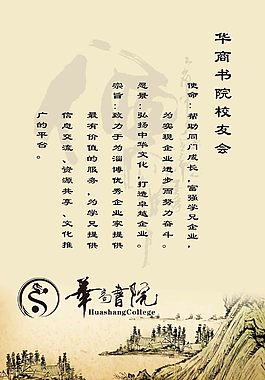 华商书院校友会
使命：帮助同门成长，富强学兄企业，
为实现企业进步而努力奋斗。
愿景：弘扬中华文化，打造卓越企业。
宗旨：致力于为淄博优秀企业家提供
最有价值的服务，为学兄提供
信息交流、资源共享、文化推
广的平台。
華商書院
HuashangCollege